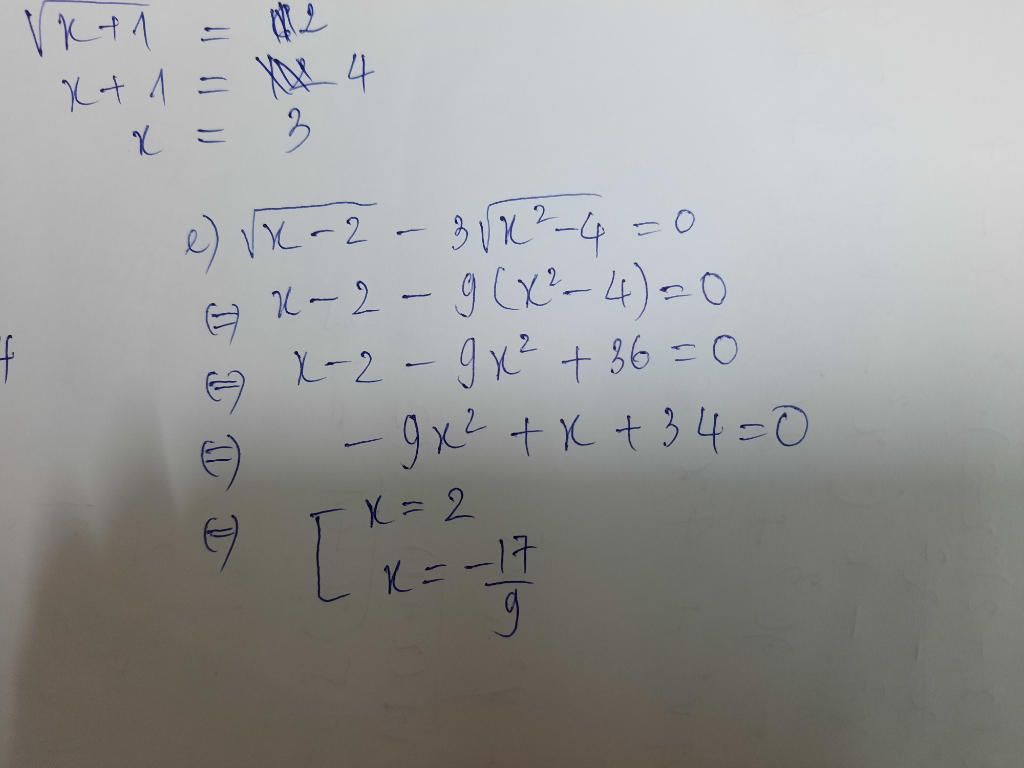 √(x+1) = 2
x + 1 = 4
x = 3
e) √(x-2) - 3√(x²-4) = 0
⇔ x - 2 - 9(x² - 4) = 0
⇔ x - 2 - 9x² + 36 = 0
⇔ -9x² + x + 34 = 0
⇔ [ x = 2
x = -17/9